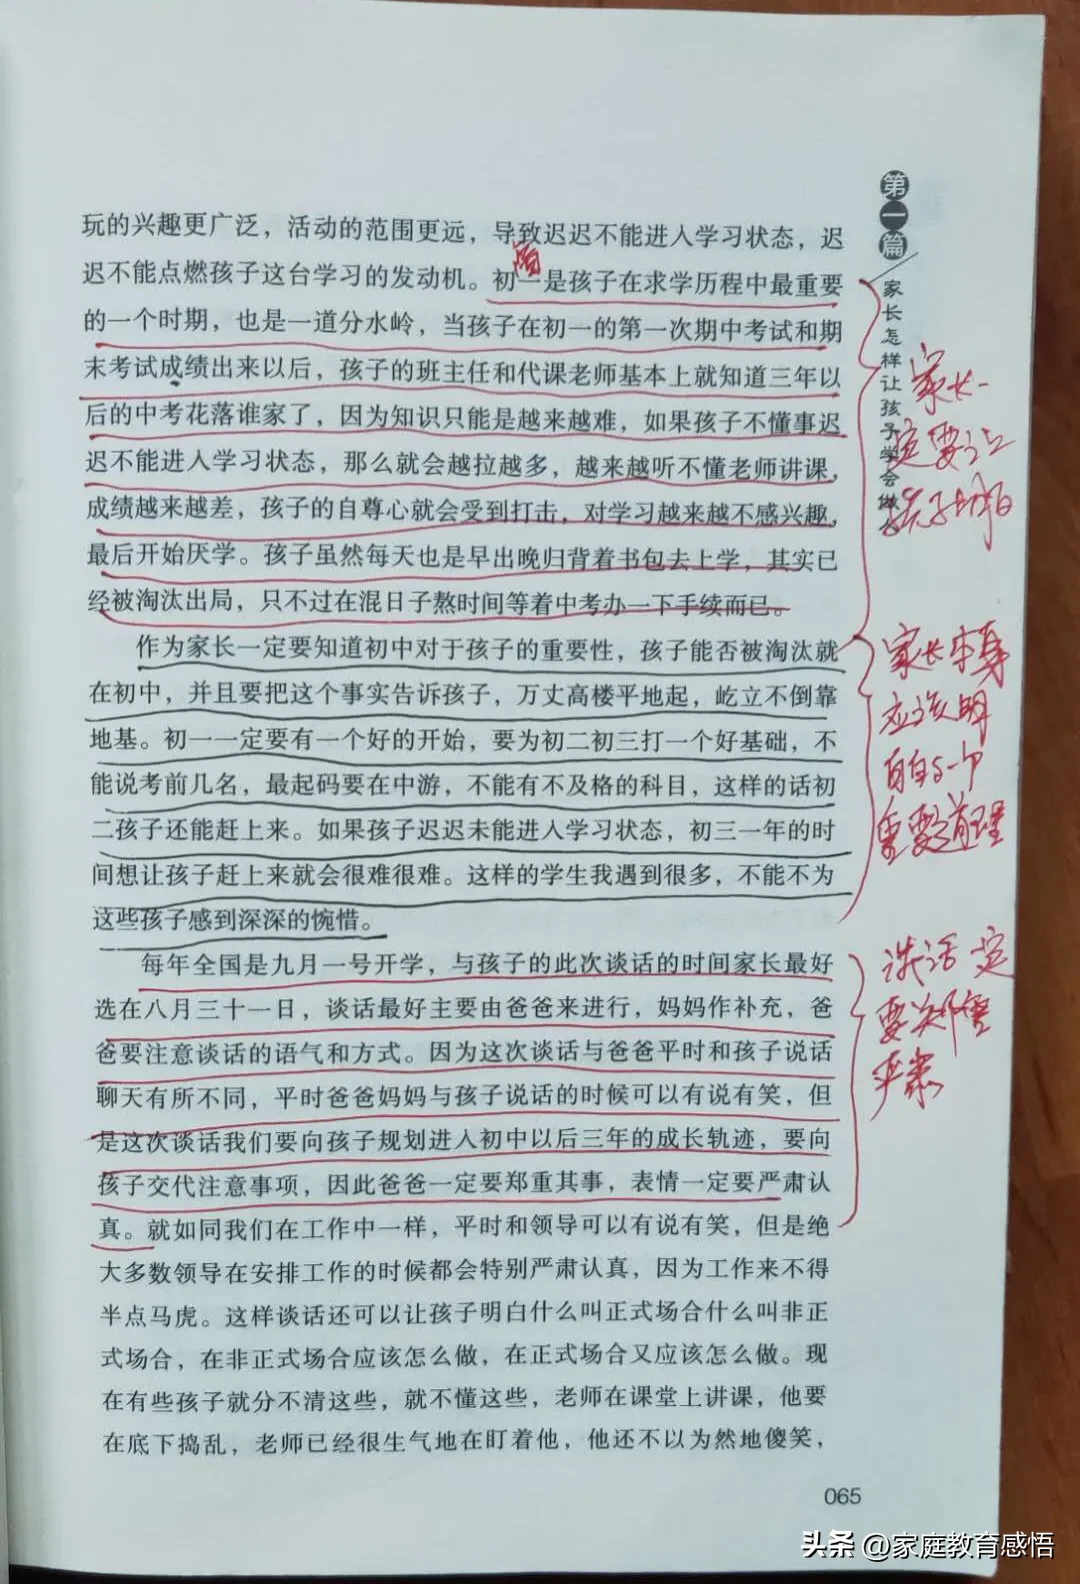 玩的兴趣更广泛，活动的范围更远，导致迟迟不能进入学习状态，迟
迟不能点燃孩子这台学习的发动机。初一是孩子在求学历程中最重要
的一个时期，也是一道分水岭，当孩子在初一的第一次期中考试和期
末考试成绩出来以后，孩子的班主任和代课老师基本上就知道三年以
后的中考花落谁家了，因为知识只能是越来越难，如果孩子不懂事迟
迟不能进入学习状态，那么就会越拉越多，越来越听不懂老师讲课，
成绩越来越差，孩子的自尊心就会受到打击，对学习越来越不感兴趣，
最后开始厌学。孩子虽然每天也是早出晚归背着书包去上学，其实已
经被淘汰出局，只不过在混日子熬时间等着中考办一下手续而已。
作为家长一定要知道初中对于孩子的重要性，孩子能否被淘汰就
在初中，并且要把这个事实告诉孩子，万丈高楼平地起，屹立不倒靠
地基。初一一定要有一个好的开始，要为初二初三打一个好基础，不
能说考前几名，最起码要在中游，不能有不及格的科目，这样的话初
二孩子还能赶上来。如果孩子迟迟未能进入学习状态，初三一年的时
间想让孩子赶上来就会很难很难。这样的学生我遇到很多，不能不为
这些孩子感到深深的惋惜。
每年全国是九月一号开学，与孩子的此次谈话的时间家长最好
选在八月三十一日，谈话最好主要由爸爸来进行，妈妈作补充，爸
爸要注意谈话的语气和方式。因为这次谈话与爸爸平时和孩子说话
聊天有所不同，平时爸爸妈妈与孩子说话的时候可以有说有笑，但
是这次谈话我们要向孩子规划进入初中以后三年的成长轨迹，要向
孩子交代注意事项，因此爸爸一定要郑重其事，表情一定要严肃认
真。就如同我们在工作中一样，平时和领导可以有说有笑，但是绝
大多数领导在安排工作的时候都会特别严肃认真，因为工作来不得
半点马虎。这样谈话还可以让孩子明白什么叫正式场合什么叫非正
式场合，在非正式场合应该怎么做，在正式场合又应该怎么做。现
在有些孩子就分不清这些，就不懂这些，老师在课堂上讲课，他要
在底下捣乱，老师已经很生气地在盯着他，他还不以为然地傻笑，
第一篇
家长怎样让孩子学会做
家长一
定要让
孩子明白
家长本身
应该明
白这一个
重要道理
谈话一定
要郑重
严肃
065
头条 @家庭教育感悟